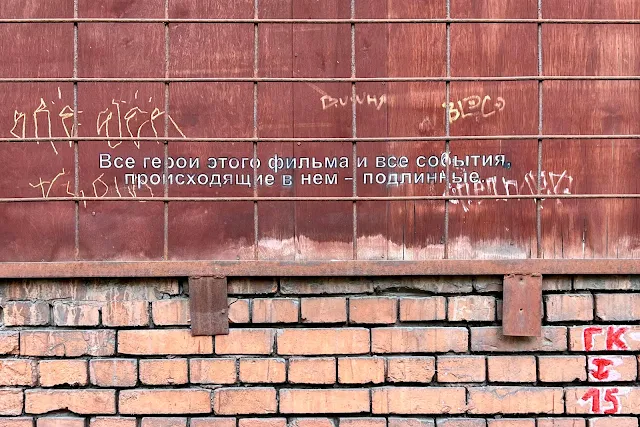 BLOCO
Все герои этого фильма и все события,
происходящие в нем – подлинные.
ГК
I
15